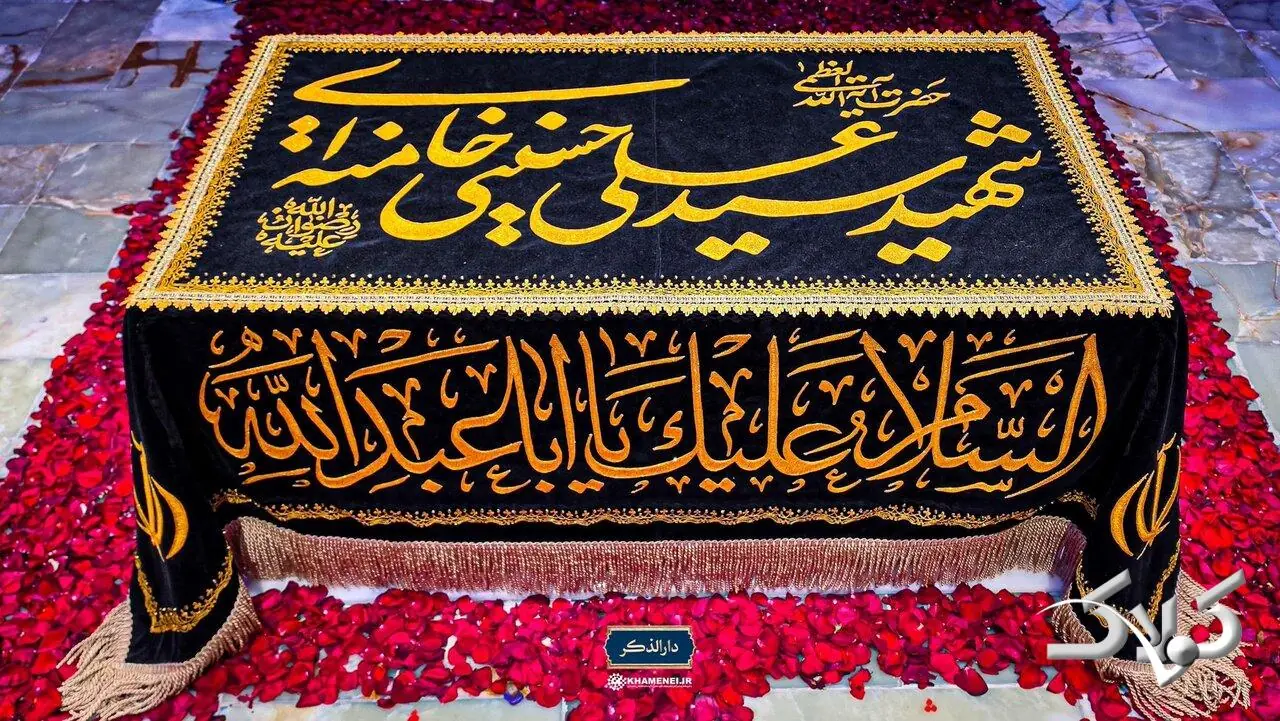 حضرت آیة الله العظمی
شهید سید علی حسینی خامنه‌ای
رضوان الله علیه
السلام علیك یا اباعبدالله
دارالذکر
KHAMENEI.IR
کولاک